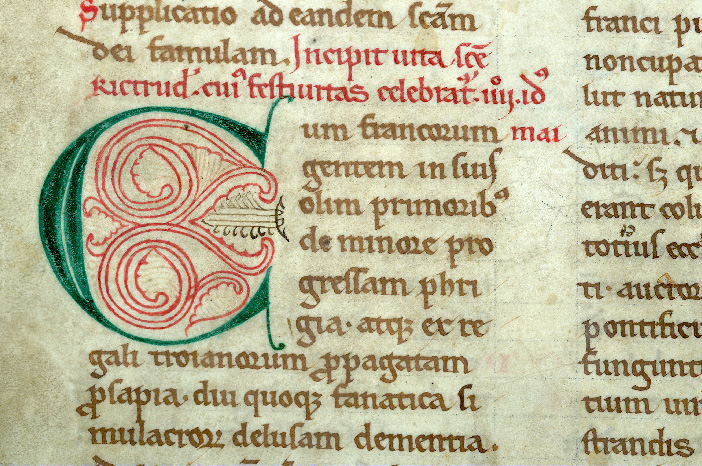 Supplicatio ad eandem scām
dei famulam. Incipit uita scē
Rictrud'. cui' festiuitas celebrat. iiij. id'
Cum francorum mai
gentem in suis
olim primorib'
de minore pro
gressam phri
gia. atq; ex re
gali troianorum propagatam
prosapia. diu quoq; fanatica si
mulacror delusam dementia.
franci
noncupa
lut natur
animi.
diti
erant colu
totius ecc
ti. auctor
pontifici
fungunt
tium
strandis